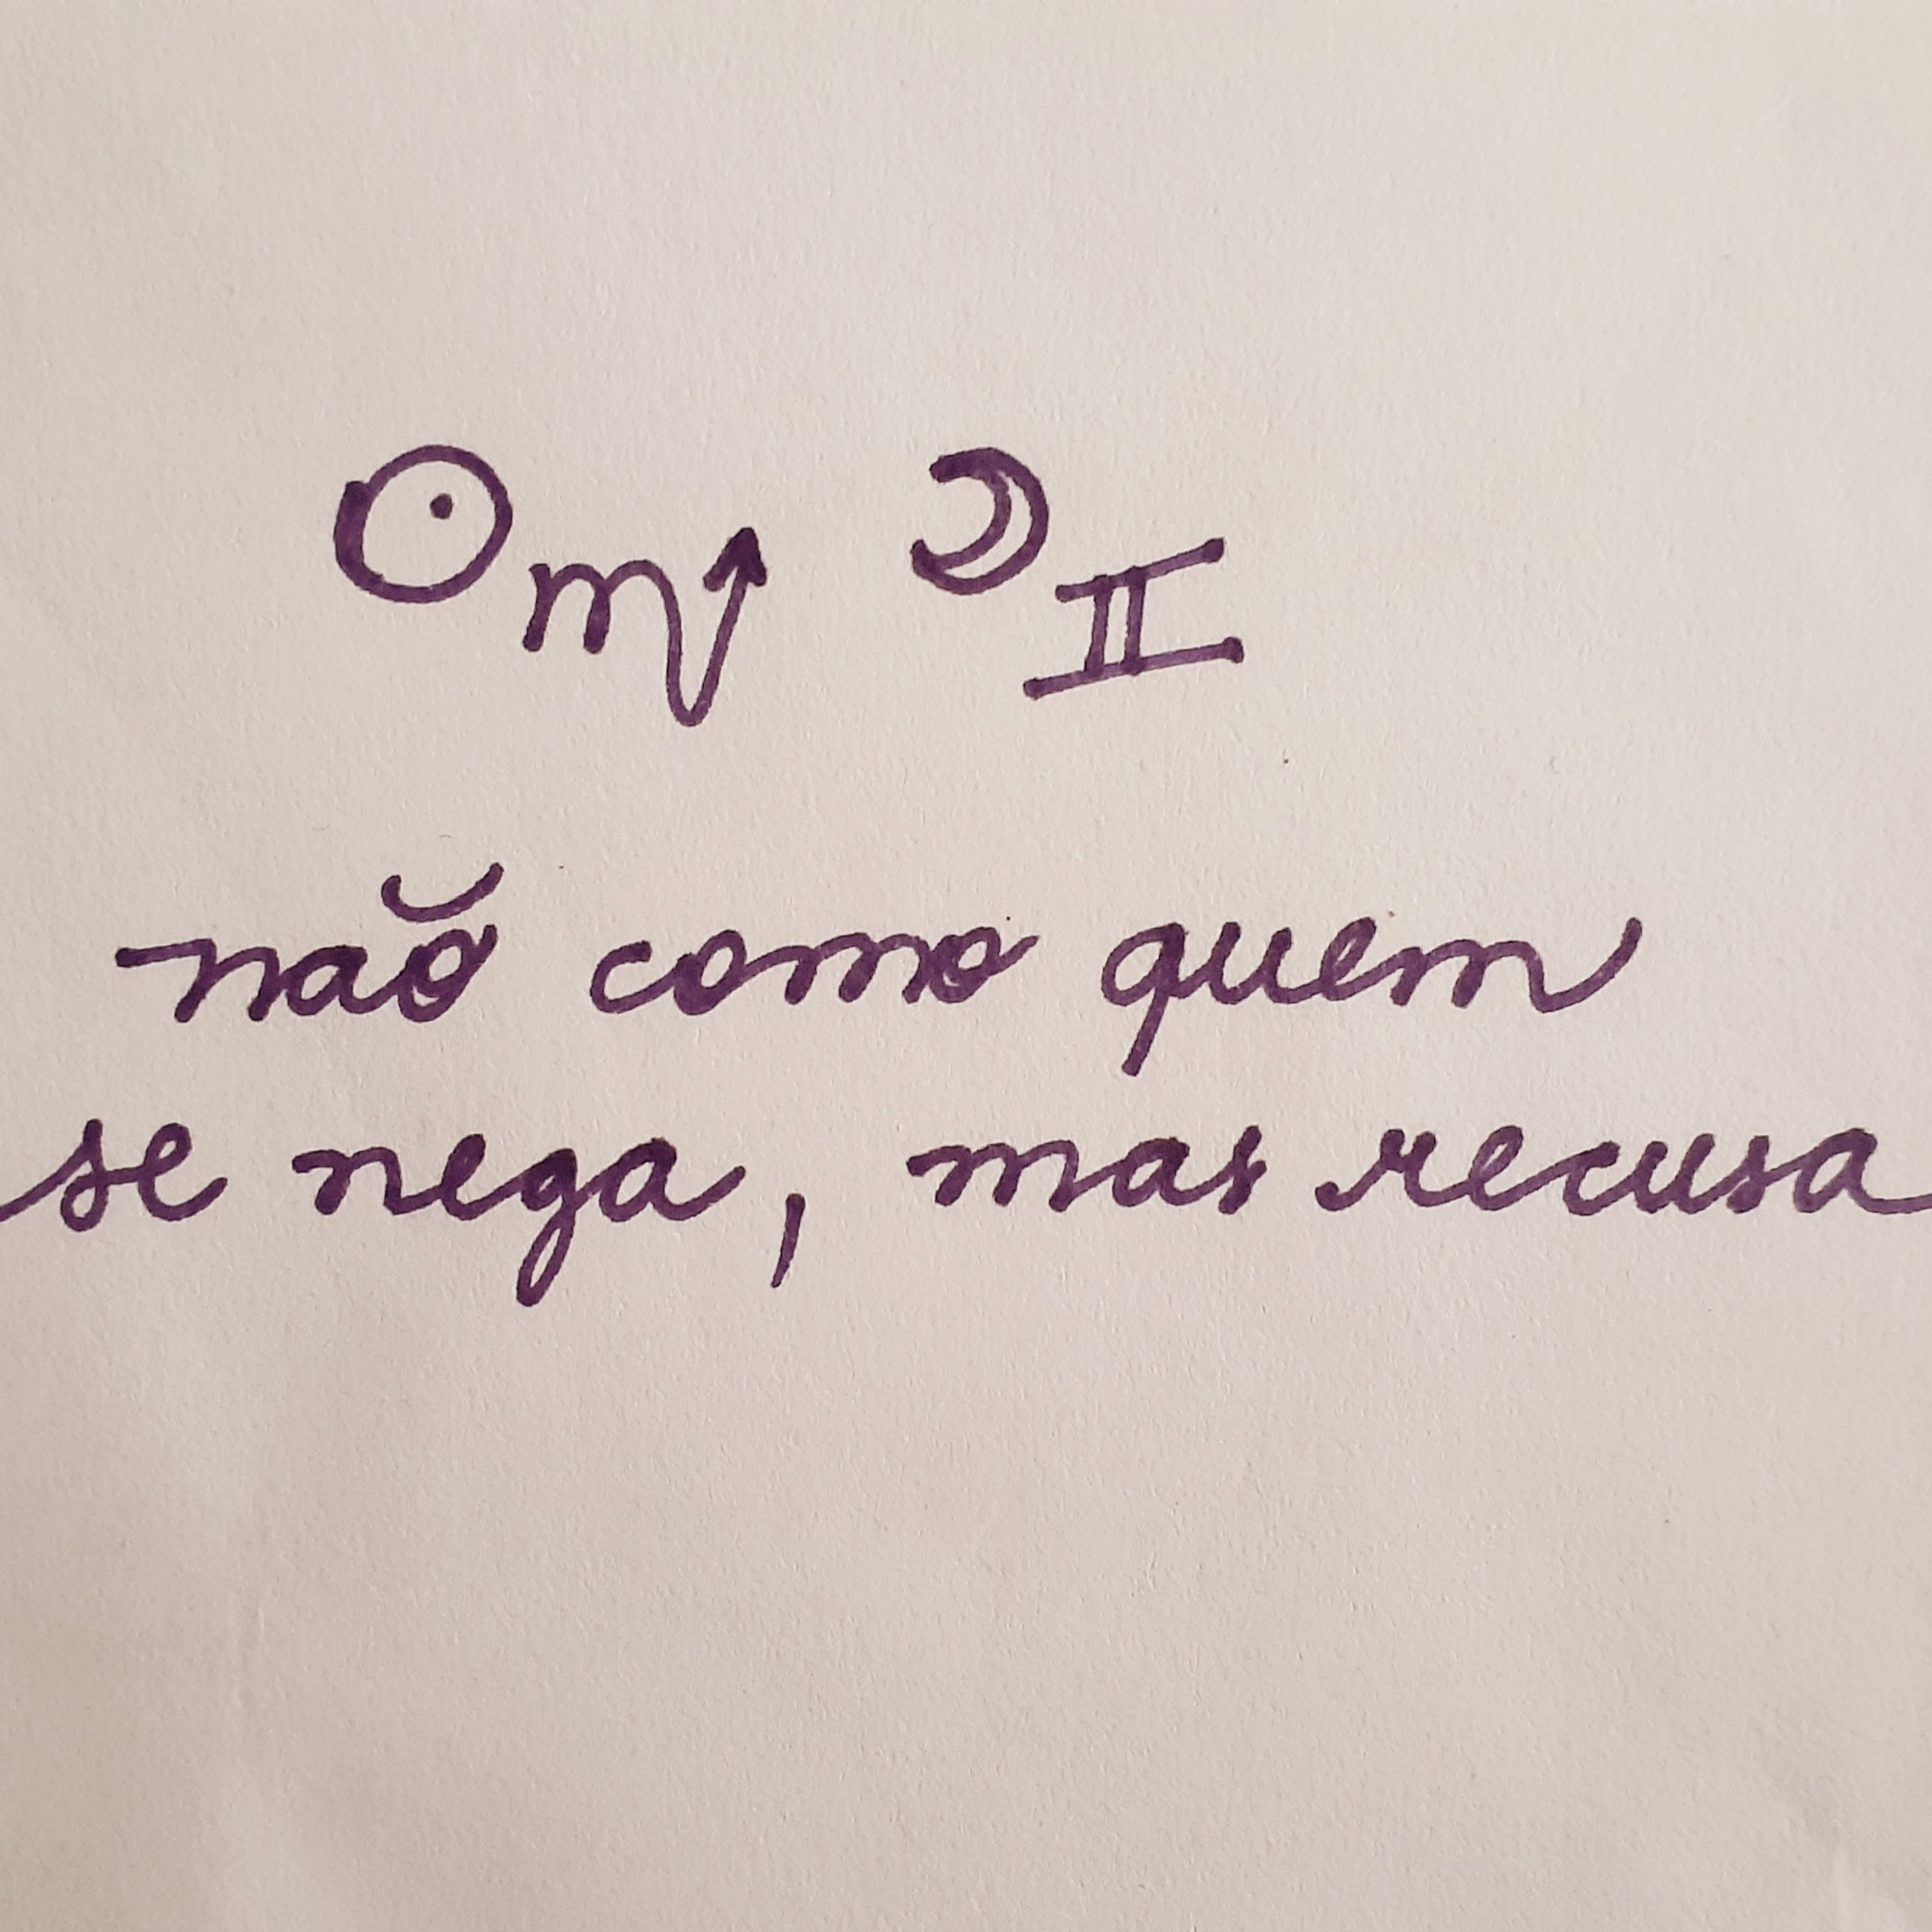 ☉♏ ☽♊
não como quem
se nega, mas recusa